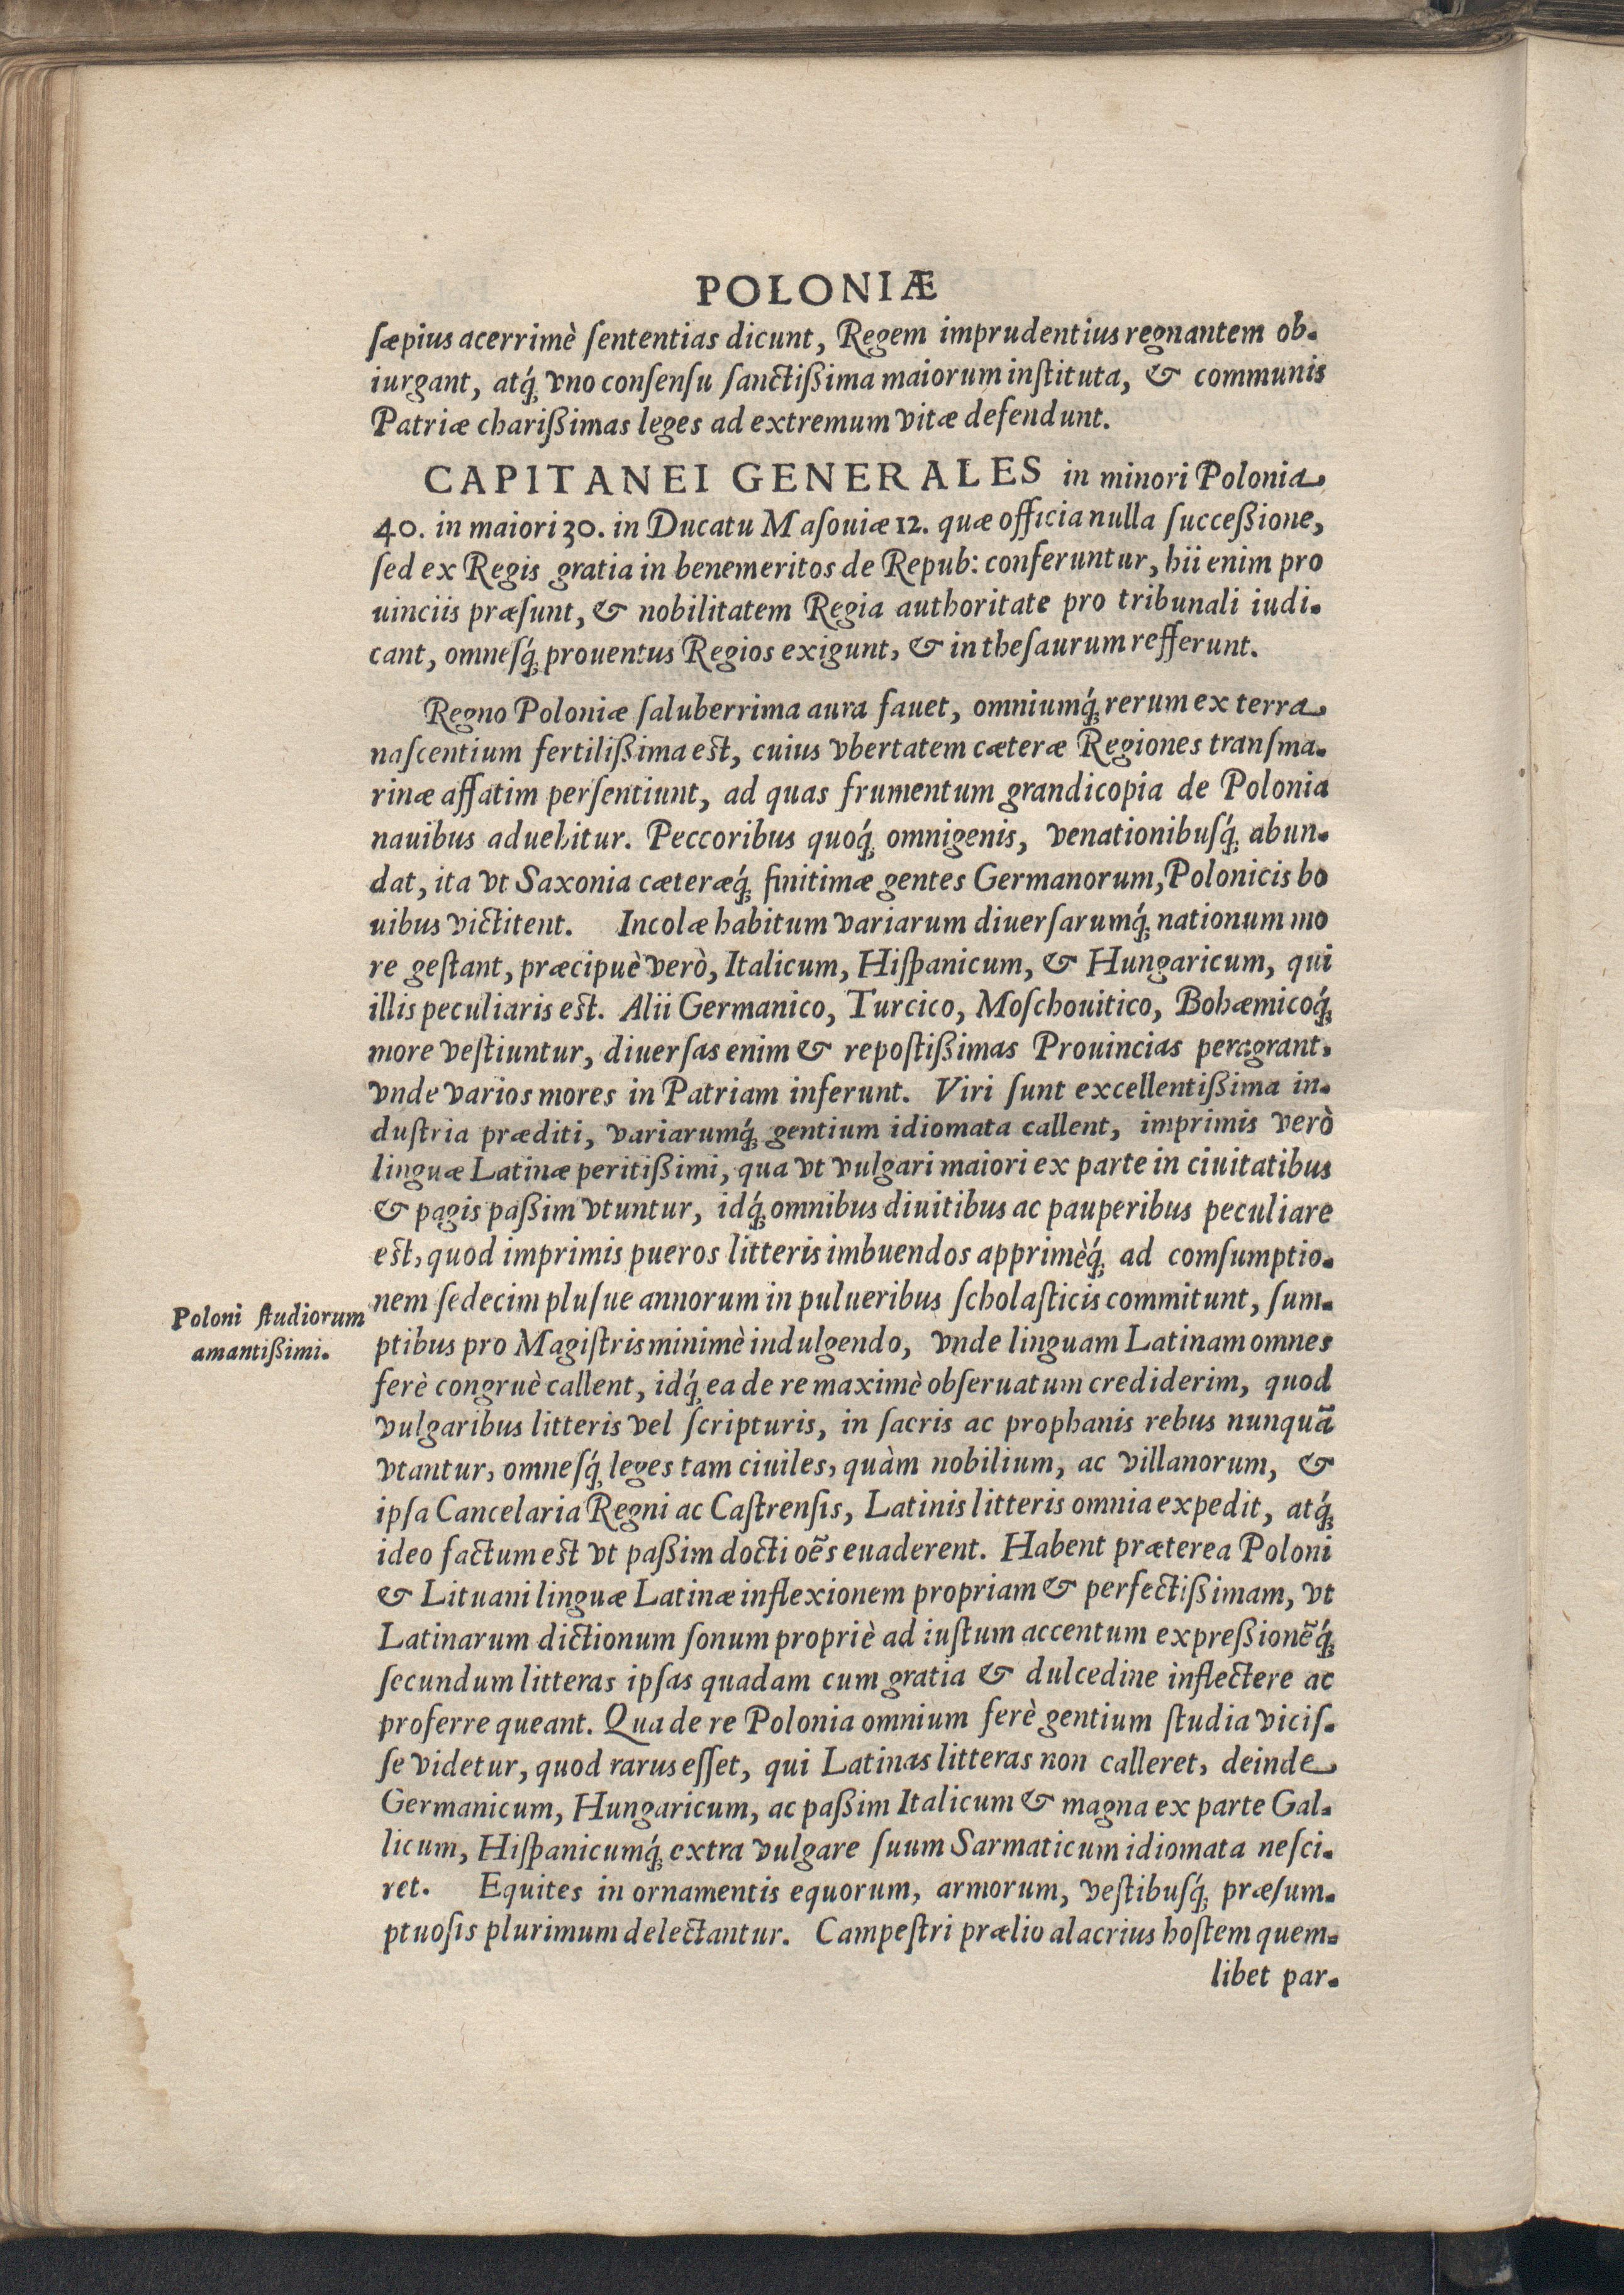 POLONIÆ
ſæpius acerrimè ſententias dicunt, Regem imprudentius regnantem ob-
iurgant, atq́; vno conſenſu ſanctißima maiorum inſtituta, & communis
Patriæ charißimas leges ad extremum vitæ defendunt.
CAPITANEI GENERALES in minori Polonia
40. in maiori 30. in Ducatu Maſouiæ 12. quæ officia nulla ſucceßione,
ſed ex Regis gratia in benemeritos de Repub: conferuntur, hii enim pro
uinciis præſunt, & nobilitatem Regia authoritate pro tribunali iudi-
cant, omneſq́; prouentus Regios exigunt, & in theſaurum refferunt.
Regno Poloniæ ſaluberrima aura fauet, omniumq́; rerum ex terra
naſcentium fertilißima est, cuius vbertatem cæteræ Regiones tranſma-
rinæ affatim perſentiunt, ad quas frumentum grandi copia de Polonia
nauibus aduehitur. Peccoribus quoq́; omnigenis, venationibuſq́; abun-
dat, ita vt Saxonia cæteræq́; finitimæ gentes Germanorum, Polonicis bo
uibus victitent. Incolæ habitum variarum diuerſarumq́; nationum mo
re geſtant, præcipuè verò, Italicum, Hiſpanicum, & Hungaricum, qui
illis peculiaris est. Alii Germanico, Turcico, Moſchouitico, Bohæmicoq́;
more veſtiuntur, diuerſas enim & repoſtißimas Prouincias peragrant,
vnde varios mores in Patriam inferunt. Viri ſunt excellentißima in-
duſtria præditi, variarumq́; gentium idiomata callent, imprimis verò
linguæ Latinæ peritißimi, qua vt vulgari maiori ex parte in ciuitatibus
& pagis paßim vtuntur, idq́; omnibus diuitibus ac pauperibus peculiare
est, quod imprimis pueros litteris imbuendos apprimèq́; ad comſumptio-
nem ſedecim pluſue annorum in pulueribus ſcholaſticis commitunt, ſum-
Poloni ſtudiorum
amantißimi.
ptibus pro Magiſtris minimè indulgendo, vnde linguam Latinam omnes
ferè congruè callent, idq́; ea de re maximè obſeruatum crediderim, quod
vulgaribus litteris vel ſcripturis, in ſacris ac prophanis rebus nunquã
vtantur, omneſq́; leges tam ciuiles, quàm nobilium, ac villanorum, &
ipſa Cancelaria Regni ac Caſtrenſis, Latinis litteris omnia expedit, atq́;
ideo factum est vt paßim docti oẽs euaderent. Habent præterea Poloni
& Lituani linguæ Latinæ inflexionem propriam & perfectißimam, vt
Latinarum dictionum ſonum propriè ad iuſtum accentum expreßionẽq́;
ſecundum litteras ipſas quadam cum gratia & dulcedine inflectere ac
proferre queant. Qua de re Polonia omnium ferè gentium ſtudia viciſ-
ſe videtur, quod rarus eſſet, qui Latinas litteras non calleret, deinde
Germanicum, Hungaricum, ac paßim Italicum & magna ex parte Gal-
licum, Hiſpanicumq́; extra vulgare ſuum Sarmaticum idiomata neſci-
ret. Equites in ornamentis equorum, armorum, veſtibuſq́; præſum-
ptuoſis plurimum delectantur. Campeſtri prælio alacrius hoſtem quem-
libet par-